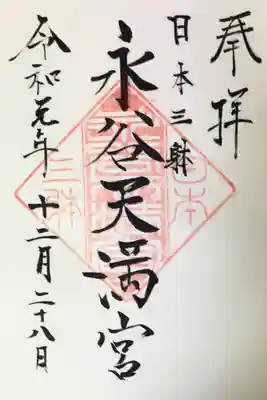 奉拝
日本三躰
永谷天満宮
令和元年十二月二十八日